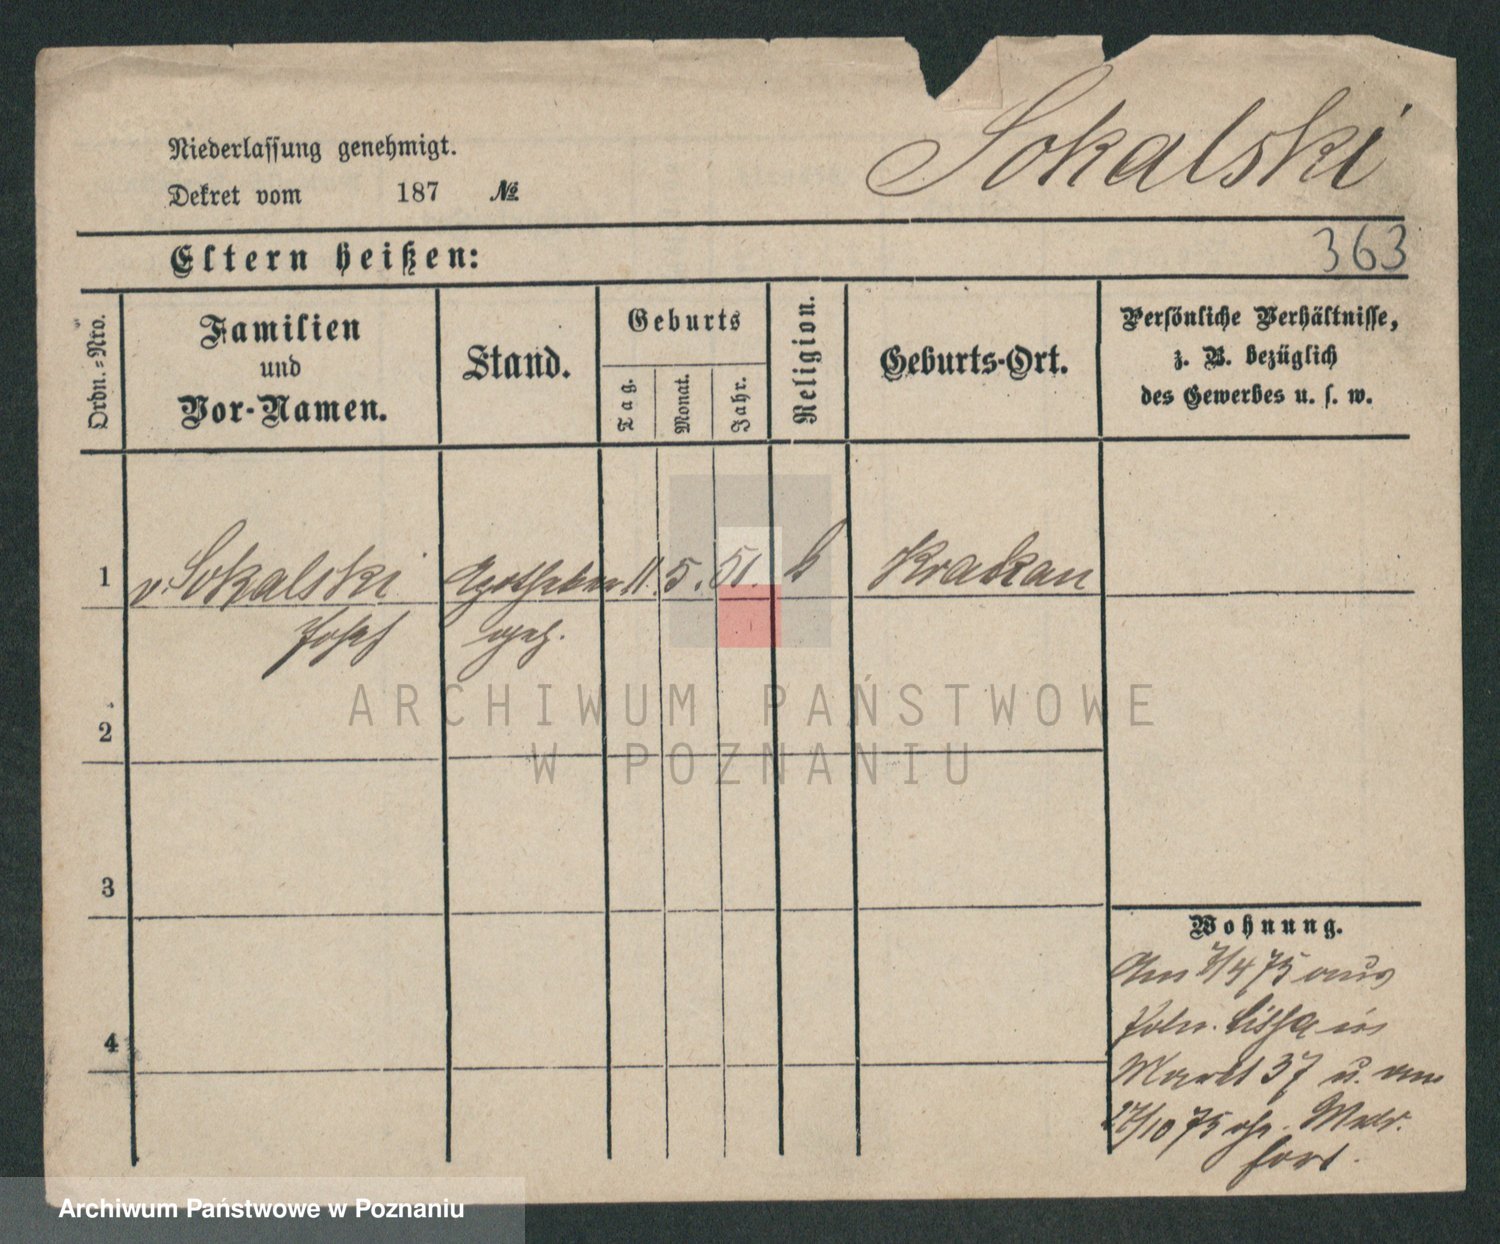 Sokalski
Niederlassung genehmigt.
Dekret vom 187 №
Eltern heißen:
363
Ordn.=Nro.
Familien
und
Vor-Namen.
Stand.
Geburts
Tag.
Monat.
Jahr.
Religion.
Geburts-Ort.
Persönliche Verhältnisse,
z. B. bezüglich
des Gewerbes u. s. w.
1 v. Sokalski Apotheker 11. 5. 51. k Krakau
Josef geh.
2
3
4
Wohnung.
Am 7/4 75 aus
Poln. Lissa in
Markt 37 u. am
27/10 75 ohn. Meld.
fort.
ARCHIWUM PAŃSTWOWE
W POZNANIU
Archiwum Państwowe w Poznaniu